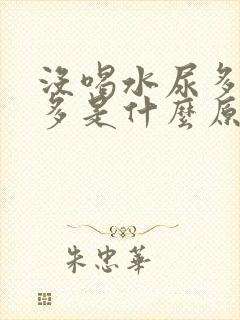 沒喝水尿多
多是什麼原
朱忠華